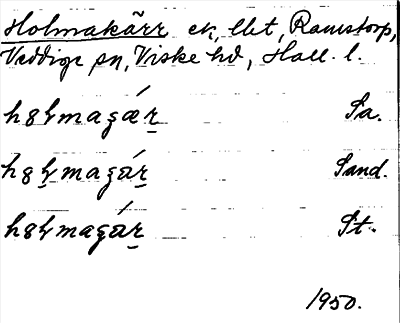 Holmakärr ek, llet, Ramstorp,
Veddige sn, Viske hd, Hall. l.
hɞɫmagǽr̲ Sa.
hɞɫmagár̲ Sand.
hɞɫmagár̲ St.
1950.